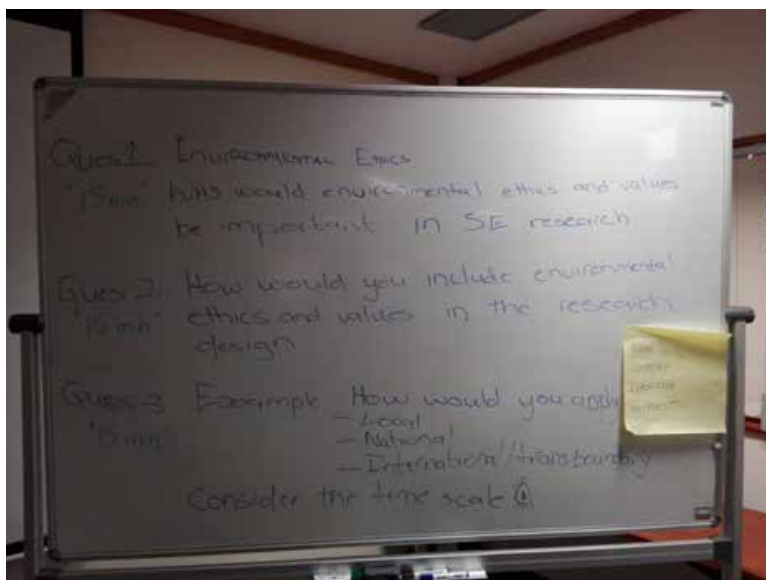 Ques 1 ENVIRONMENTAL ETHICS
"15 min" Why would environmental ethics and values
be important in SE research
Ques 2 How would you include environmental
"15 mn" ethics and values in the research
design
Ques 3 Example How would you apply
"15 mn" – Local
– National
– International/transboundry
Consider the time scale